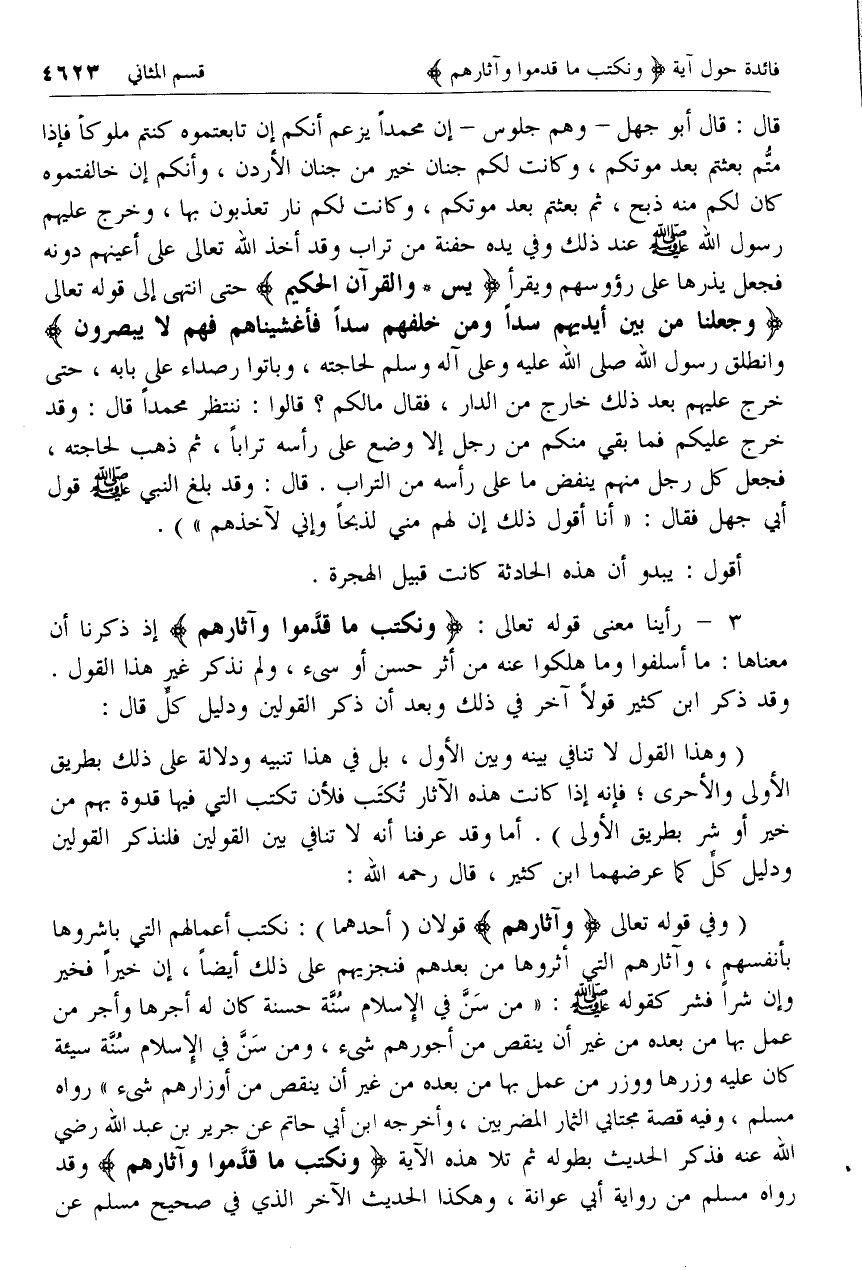 فائدة حول آية ﴿ ونكتب ما قدموا وآثارهم ﴾ قسم المثاني ٤٦٢٣
قال : قال أبو جهل – وهم جلوس – إن محمداً يزعم أنكم إن تابعتموه كنتم ملوكاً فإذا
متُّم بعثتم بعد موتكم ، وكانت لكم جنان خير من جنان الأردن ، وأنكم إن خالفتموه
كان لكم منه ذبح ، ثم بعثتم بعد موتكم ، وكانت لكم نار تعذبون بها ، وخرج عليهم
رسول الله ﷺ عند ذلك وفي يده حفنة من تراب وقد أخذ الله تعالى على أعينهم دونه
فجعل يذرها على رؤوسهم ويقرأ ﴿ يس * والقرآن الحكيم ﴾ حتى انتهى إلى قوله تعالى
﴿ وجعلنا من بين أيديهم سداً ومن خلفهم سداً فأغشيناهم فهم لا يبصرون ﴾
وانطلق رسول الله صلى الله عليه وعلى آله وسلم لحاجته ، وباتوا رصداء على بابه ، حتى
خرج عليهم بعد ذلك خارج من الدار ، فقال مالكم ؟ قالوا : ننتظر محمداً قال : وقد
خرج عليكم فما بقي منكم من رجل إلا وضع على رأسه تراباً ، ثم ذهب لحاجته ،
فجعل كل رجل منهم ينفض ما على رأسه من التراب . قال : وقد بلغ النبي ﷺ قول
أبي جهل فقال : « أنا أقول ذلك إن لهم مني لذبحاً وإني لآخذهم » ) .
أقول : يبدو أن هذه الحادثة كانت قبيل الهجرة .
٣ – رأينا معنى قوله تعالى : ﴿ ونكتب ما قدَّموا وآثارهم ﴾ إذ ذكرنا أن
معناها : ما أسلفوا وما هلكوا عنه من أثر حسن أو سىء ، ولم نذكر غير هذا القول .
وقد ذكر ابن كثير قولاً آخر في ذلك وبعد أن ذكر القولين ودليل كلٍّ قال :
( وهذا القول لا تنافي بينه وبين الأول ، بل في هذا تنبيه ودلالة على ذلك بطريق
الأولى والأحرى ؛ فإنه إذا كانت هذه الآثار تُكتَب فلأن تكتب التي فيها قدوة بهم من
خير أو شر بطريق الأولى ) . أما وقد عرفنا أنه لا تنافي بين القولين فلنذكر القولين
ودليل كلٍّ كما عرضهما ابن كثير ، قال رحمه الله :
( وفي قوله تعالى ﴿ وآثارهم ﴾ قولان ( أحدهما ) : نكتب أعمالهم التي باشروها
بأنفسهم ، وآثارهم التي أثروها من بعدهم فنجزيهم على ذلك أيضاً ، إن خيراً فخير
وإن شراً فشر كقوله ﷺ : « من سَنَّ في الإسلام سُنَّة حسنة كان له أجرها وأجر من
عمل بها من بعده من غير أن ينقص من أجورهم شىء ، ومن سَنَّ في الإسلام سُنَّة سيئة
كان عليه وزرها ووزر من عمل بها من بعده من غير أن ينقص من أوزارهم شىء » رواه
مسلم ، وفيه قصة مجتابي الثمار المضريين ، وأخرجه ابن أبي حاتم عن جرير بن عبد الله رضي
الله عنه فذكر الحديث بطوله ثم تلا هذه الآية ﴿ ونكتب ما قدَّموا وآثارهم ﴾ وقد
رواه مسلم من رواية أبي عوانة ، وهكذا الحديث الآخر الذي في صحيح مسلم عن